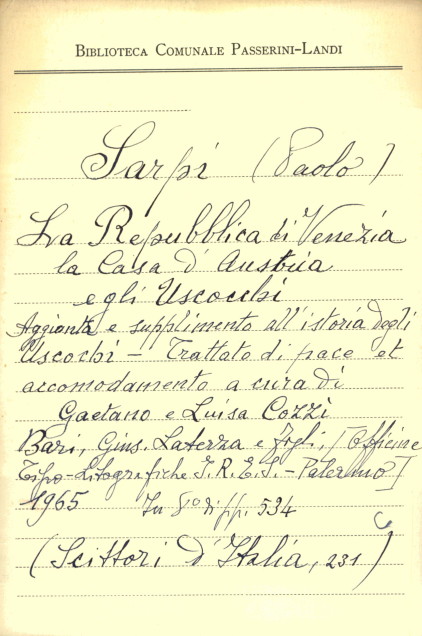 BIBLIOTECA COMUNALE PASSERINI-LANDI
Sarpi (Paolo)
La Repubblica di Venezia
la Casa d'Austria
e gli Uscocchi
Aggionta e supplimento all'istoria degli
Uscochi - Trattato di pace et
accomodamento a cura di
Gaetano e Luisa Cozzi
Bari, Gius. Laterza e Figli, [Officine
Tipo-Litografiche I.R.E.S. - Palermo]
1965 In 8° di pp. 534
(Scittori d'Italia, 231)